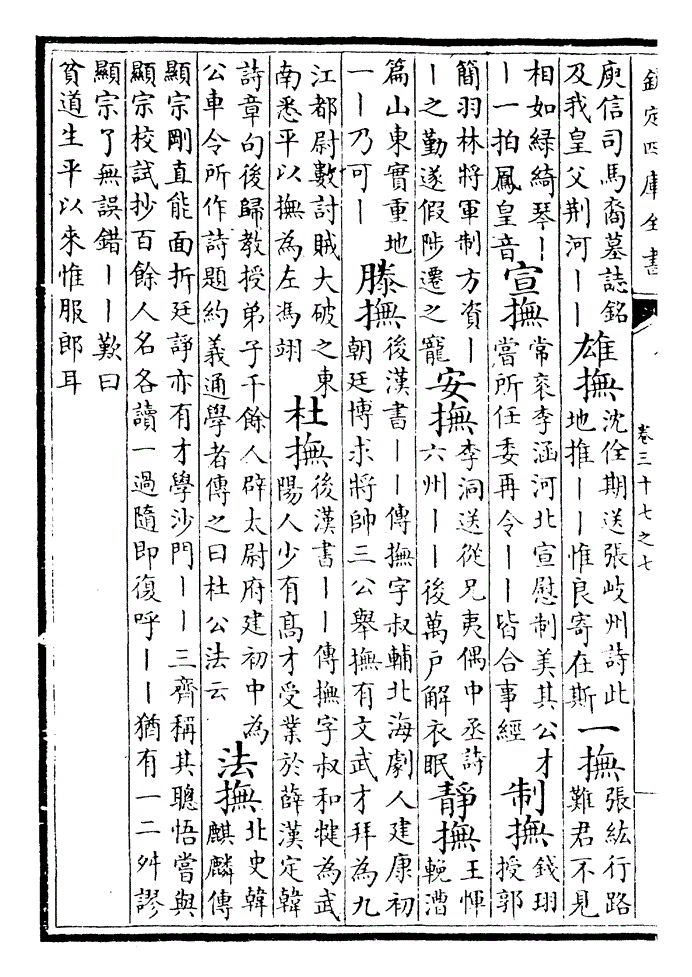 欽定四庫全書
卷三十七之七
庾信司馬裔墓誌銘
及我皇父荆河丨丨
雄撫
沈佺期送張岐州詩此
地推丨丨惟良寄在斯
一撫
張紘行路
難君不見
相如緑綺琴丨
丨一拍鳳皇音
宣撫
常衮李涵河北宣慰制美其公才
當所任委再令丨丨皆合事經
制撫
錢珝
授郭
簡羽林將軍制方資丨
丨之勤遂假陟遷之寵
安撫
李洞送從兄夷偶中丞詩
六州丨丨後萬戸解衣眠
靜撫
王惲
輓漕
篇山東實重地
一丨乃可丨
滕撫
後漢書丨丨傳撫字叔輔北海劇人建康初
朝廷博求將帥三公舉撫有文武才拜為九
江都尉數討賊大破之東
南悉平以撫為左馮翊
杜撫
後漢書丨丨傳撫字叔和犍為武
陽人少有髙才受業於薛漢定韓
詩章句後歸教授弟子千餘人辟太尉府建初中為
公車令所作詩題約義通學者傳之曰杜公法云
法撫
北史韓
麒麟傳
顯宗剛直能面折廷諍亦有才學沙門丨丨三齊稱其聰悟嘗與
顯宗校試抄百餘人名各讀一過隨即復呼丨丨猶有一二舛謬
顯宗了無誤錯丨丨歎曰
貧道生平以來惟服郎耳